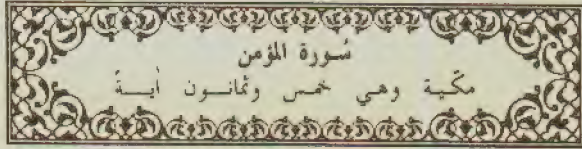 سُورة المؤمن
مكّية وهي خمس وثمانون أيــةً